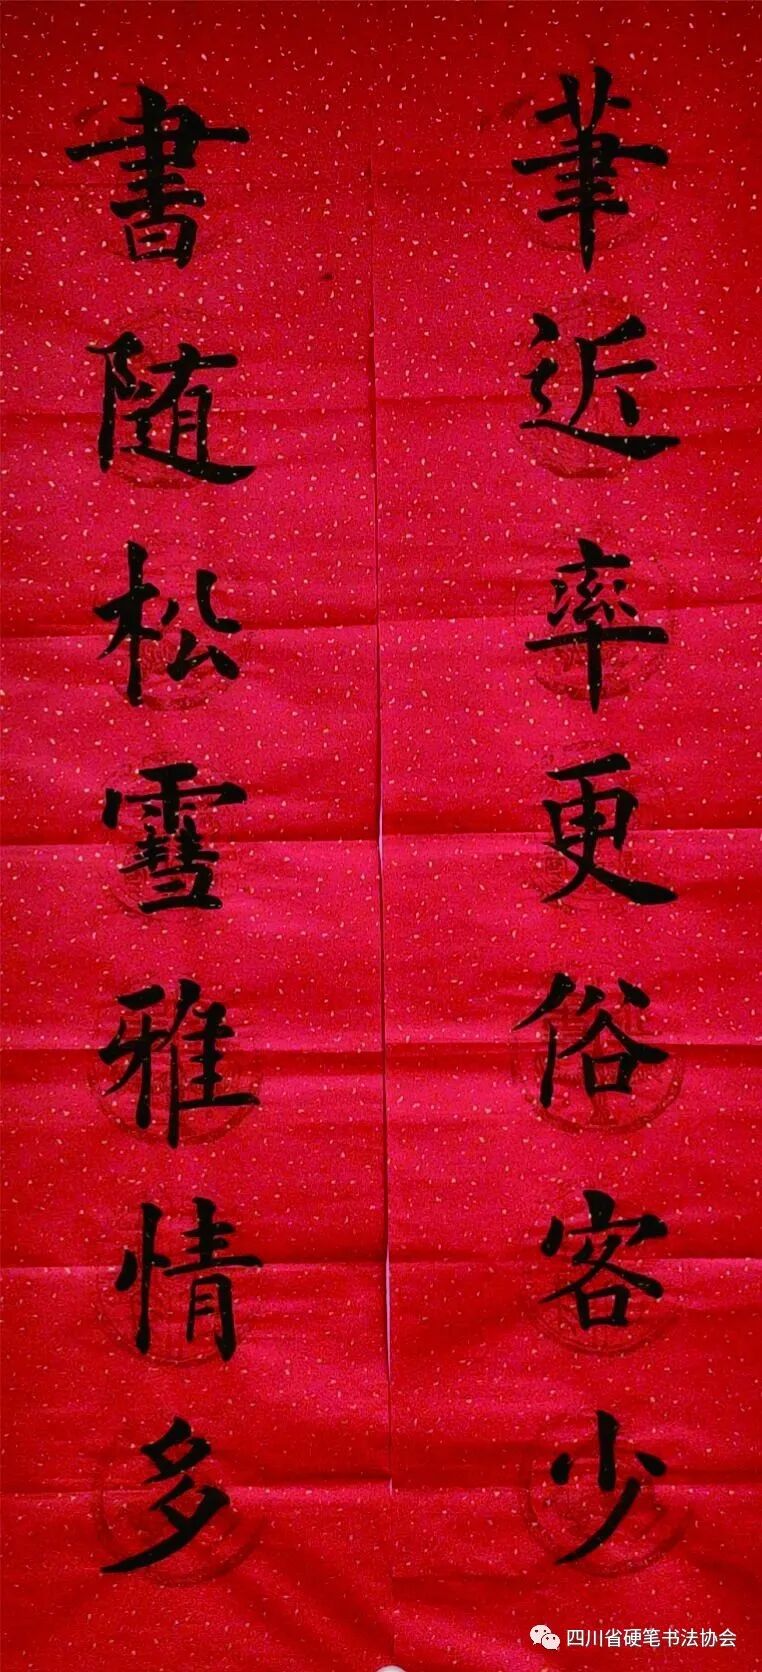 筆近率更俗客少
書随松雪雅情多
四川省硬笔书法协会